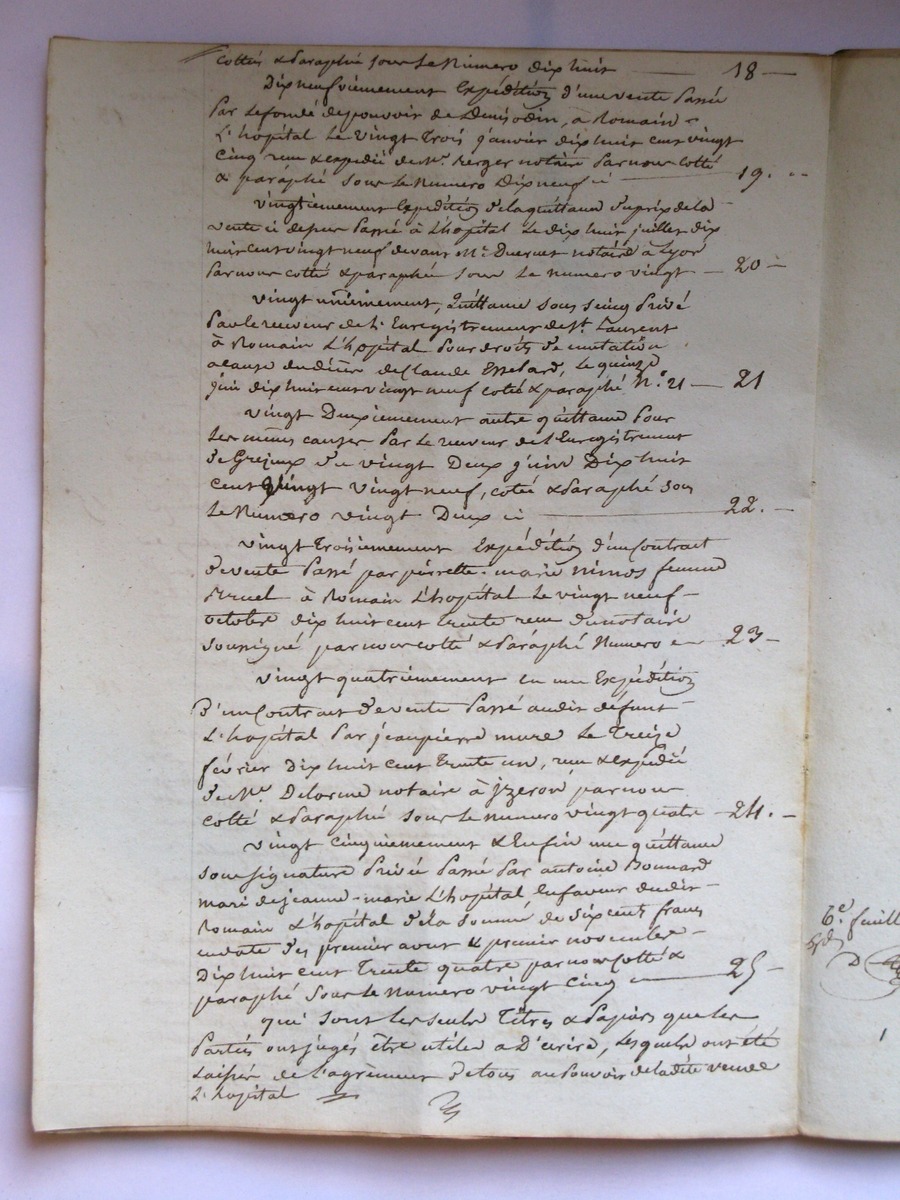 cottée & Paraphée sous Le Numero dix huit 18
Dix neufviemement Expédition d'une vente Passée
Par Le fondé de pouvoir de Denis odin, a Romain
L'hopital Le Vingt Trois janvier dix huit cent vingt
cinq reçue & expedié de Me. Berger notaire Par nous Cotté
& paraphé sous Le Numero Dix neuf ci 19.
vingtiemement Expédition de la quittance du prix de la
vente ci dessus Passée à L'hopital Le dix huit juillet dix
huit cent vingt neuf devant Me notaire à Lyon
Par nous cotté & paraphé sous Le numero vingt 20
vingt unièmement, Quittance sous seing Privé
Par le receveur de L'Enregistrement de St. Laurent
à Romain L'hopital Pour droits de mutation
a cause du décès de Claude, Le quinze
juin dix huit cent vingt neuf cotté & paraphé No. 21 21
vingt Deuxiemement autre quittance Pour
Les mêmes causes Par Le receveur de L'Enregistrement
de du vingt Deux juin Dix huit
cent vingt neuf, cotée & Paraphé sous
Le Numero vingt Deux ci 22.
vingt Troisiemement Expédition d'un Contrat
de vente Passé par pierrette-marie nimos femme
à Romain L'hopital Le vingt neuf
octobre dix huit cent trente reçu du notaire
soussigné par nous cotté & Paraphé Numero 23
vingt quatriemement en une Expédition
D'un Contrat de vente Passé audit défunt
L'hopital Par jean pierre mure Le Treize
février Dix huit cent Trente un, reçu & expédié
de Me. Delorme notaire à jzeron par nous
cotté & Paraphé sous Le numero vingt quatre 24.
vingt cinquiemement & Enfin une quittance
sous signature Privée Passé Par antoine Bonnard
mari de jeanne-marie L'hopital, En faveur dudit
Romain L'hopital de la somme de six cent francs
en date des premier aout & premier novembre
Dix huit cent Trente quatre par nous Cotté &
paraphé sous Le Numero vingt cinq 25
qui sont Les seuls Titres & Papiers que Les
Parties ont jugés être utiles a D'ecrire, Lesquels ont été
Laissés de L'agrément de tous au Pouvoir de la dite veuve
L'hopital
6e. feuill